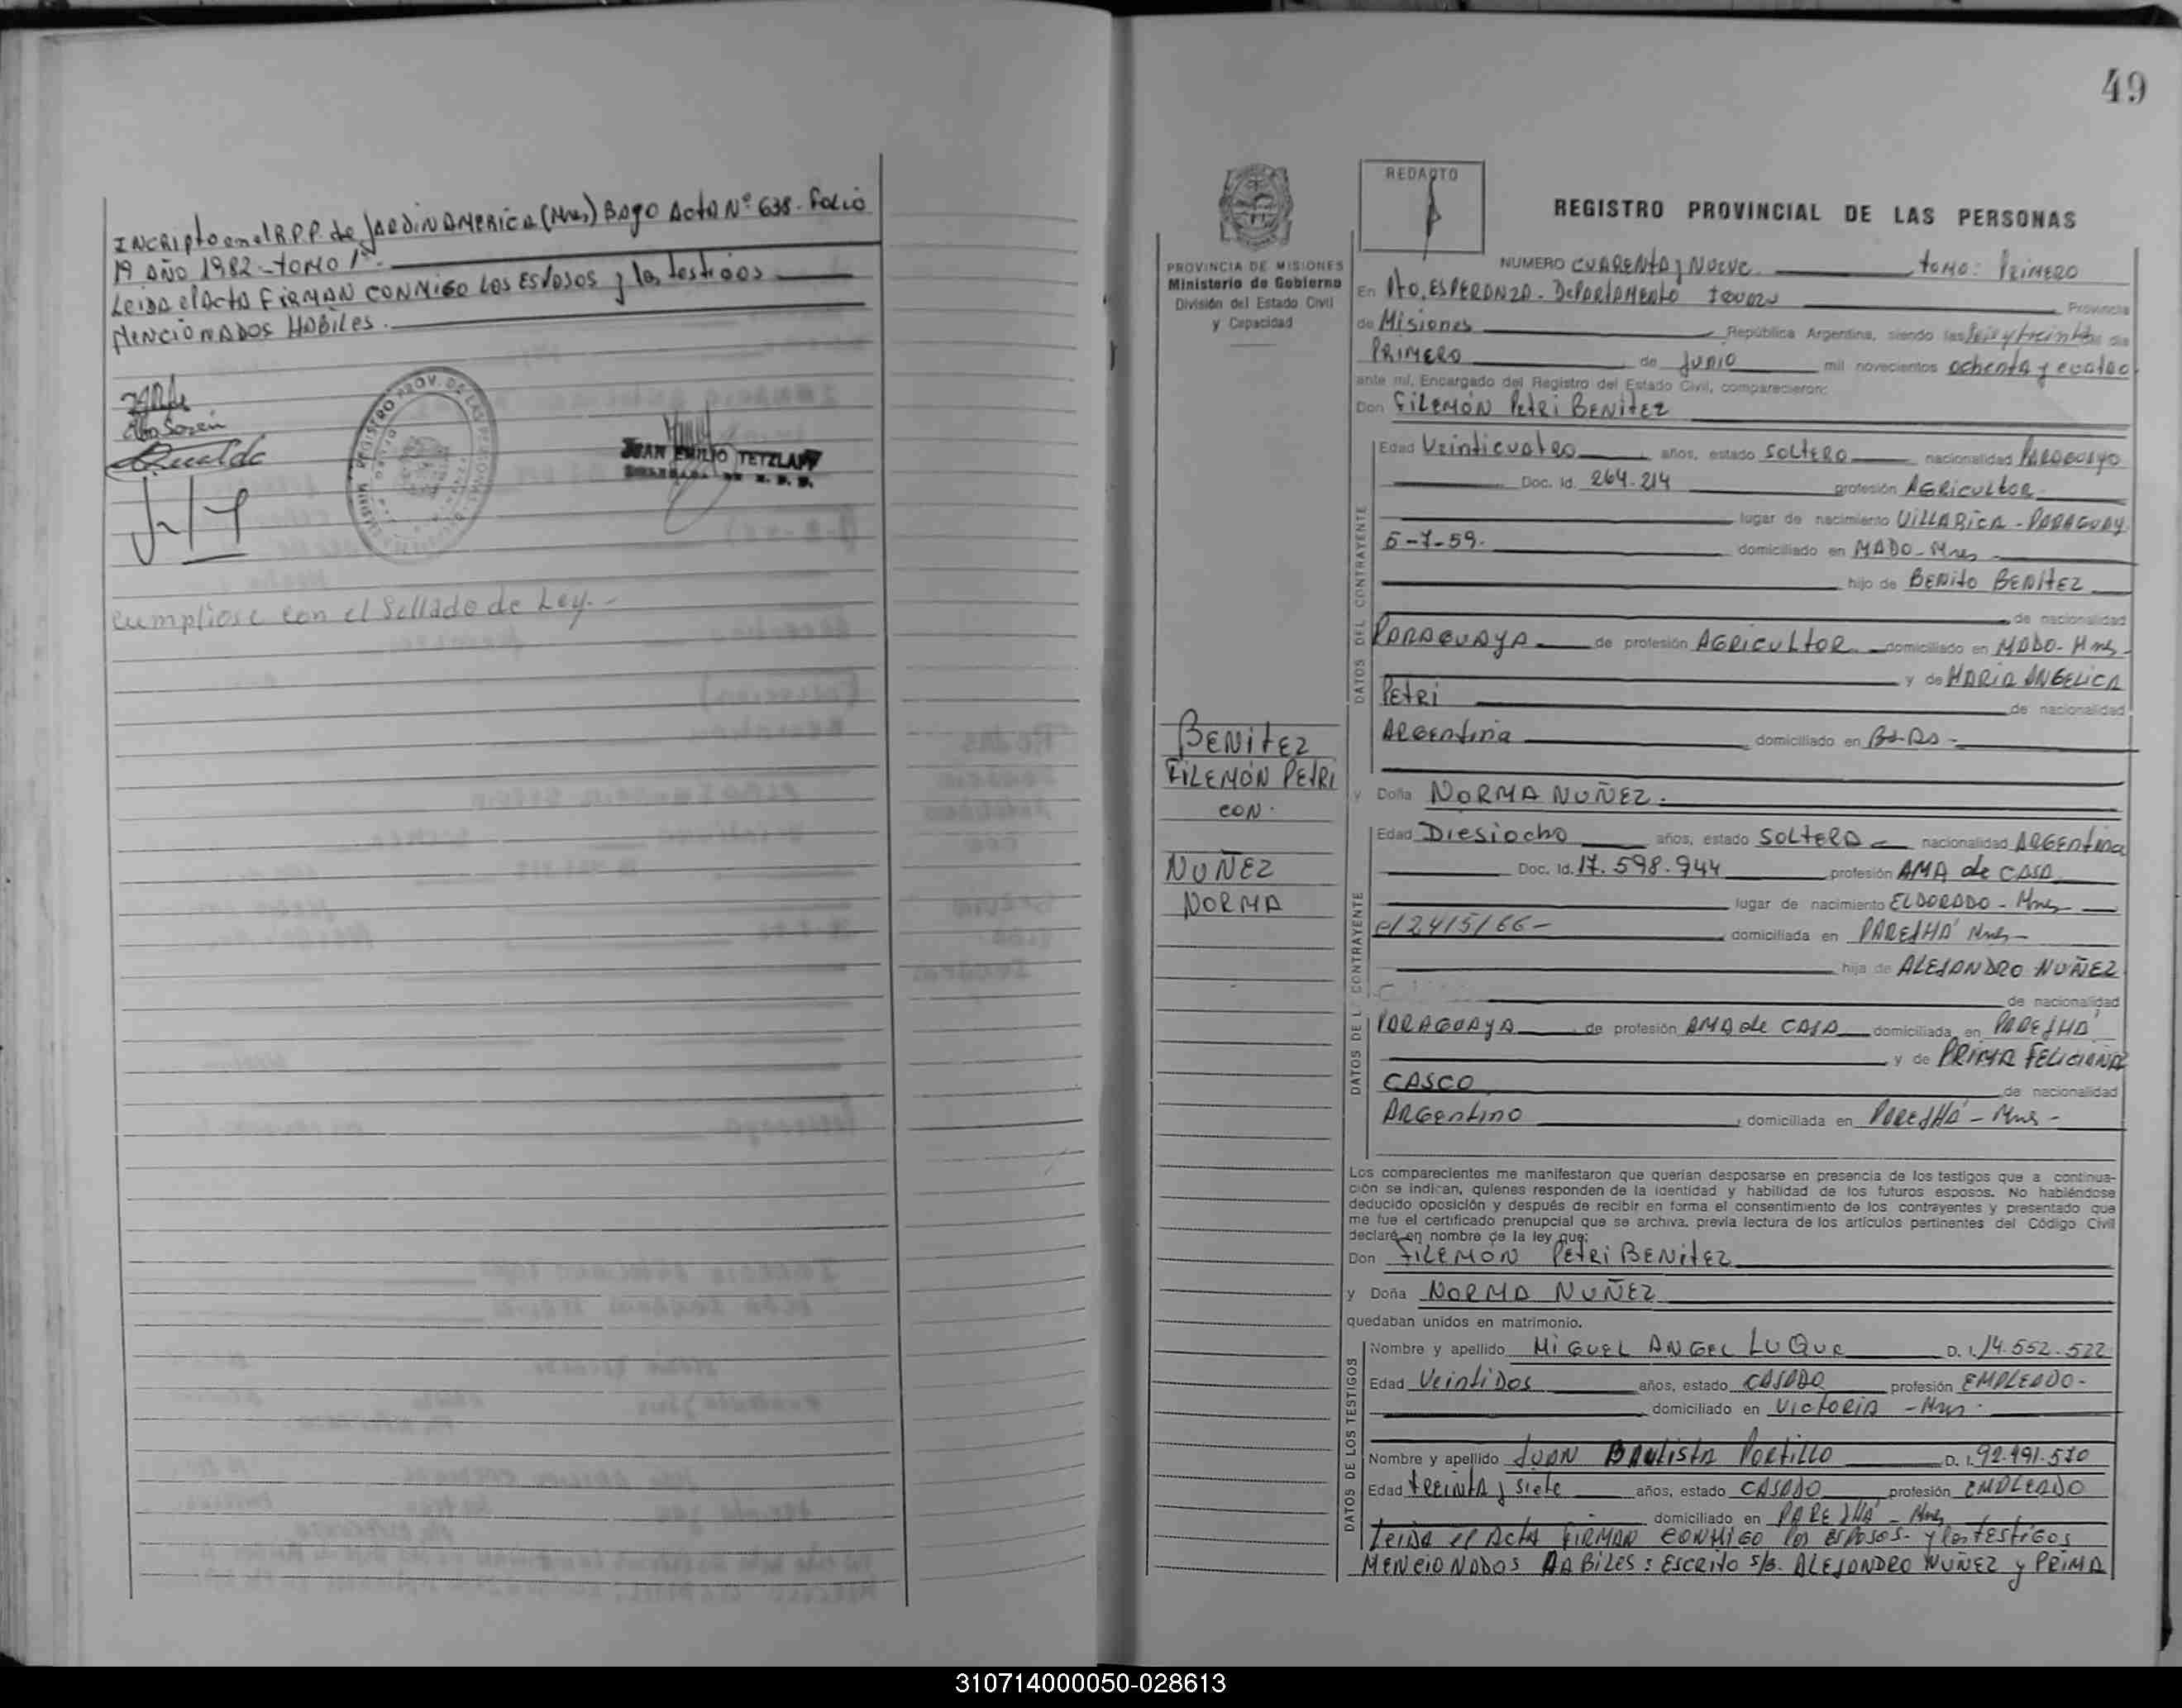 INCRIPto en el R.P.P. de JARDIN AMERICA (Mnes) BAJO ActA Nº 638. Folio
19 AÑO 1982 - tomo 1º.
LeiDA el Acta FiRMAN CONMIGO Los Esposos y los testigos
MENCIONADOS HABiles.
REGISTRO PROV. DE LAS PERSONAS
JUAN EMILIO TETZLAFF
Cumpliose con el Sellado de Ley.-
49
REDACTO
REGISTRO PROVINCIAL DE LAS PERSONAS
PROVINCIA DE MISIONES
Ministerio de Gobierno
División del Estado Civil
y Capacidad
NUMERO CUARENTA y NUEVE tomo: PRIMERO
En Pto. ESPERANZA. DepARtAMENto IGUAZU Provincia
de Misiones República Argentina, siendo las seis y treinta del día
PRIMERO de Junio mil novecientos ochenta y cuatro
ante mí, Encargado del Registro del Estado Civil, comparecieron:
Don FiLEMÓN PetRi BENitEZ
DATOS DEL CONTRAYENTE
Edad Veinticuatro años, estado SOLtERO nacionalidad PARAGUAYO
Doc. Id. 264.214 profesión AGRicultor
lugar de nacimiento VILLARICA - PARAGUAY.
5-7-59. domiciliado en MADO - Mnes
hijo de BENito BENitEZ
de nacionalidad
PARAGUAYA de profesión AGRicultor domiciliado en MADO - Mnes
y de MARIA ANGELICA
PetRi de nacionalidad
ARGENtina domiciliado en Bs-As -
y Doña NORMA NUÑEZ.
BENitEZ
FiLEMÓN PEtRi
CON.
NUÑEZ
NORMA
DATOS DE LA CONTRAYENTE
Edad Diesiocho años, estado SOLtERA nacionalidad ARGENtina
Doc. Id. 17.598.944 profesión AMA de CASA
lugar de nacimiento ELDORADO - Mnes
el 24/5/66 - domiciliada en PAREJHA' Mnes -
hija de ALEJANDRO NUÑEZ
de nacionalidad
PARAGUAYA de profesión AMA de CASA domiciliada en PAREJHA'
y de PRIMA FELICIANA
CASCO de nacionalidad
ARGENtino domiciliada en PAREJHA' - Mnes -
Los comparecientes me manifestaron que querían desposarse en presencia de los testigos que a continua-
ción se indican, quienes responden de la identidad y habilidad de los futuros esposos. No habiéndose
deducido oposición y después de recibir en forma el consentimiento de los contrayentes y presentado que
me fue el certificado prenupcial que se archiva, previa lectura de los artículos pertinentes del Código Civil
declaré en nombre de la ley que:
Don FiLEMÓN PetRi BENitEZ
y Doña NORMA NUÑEZ
quedaban unidos en matrimonio.
DATOS DE LOS TESTIGOS
Nombre y apellido MiGUEL ANGEL LUQUE D. I. 14.552.522
Edad VeintiDos años, estado CASADO profesión EMPLEADO -
domiciliado en VictoRiA - Mnes -
Nombre y apellido JUAN BAUtistA PORtiLLO D. I. 92.491.510
Edad tREINtA y siete años, estado CASADO profesión EMPLEADO
domiciliado en PAREJHA' - Mnes
LeiDA el ActA FiRMAN CONMIGO los ESPOSOS - y los tEStiGOS
MENCIONADOS HABILES: ESCRito S/B. ALEJANDRO NUÑEZ y PRIMA
310714000050-028613